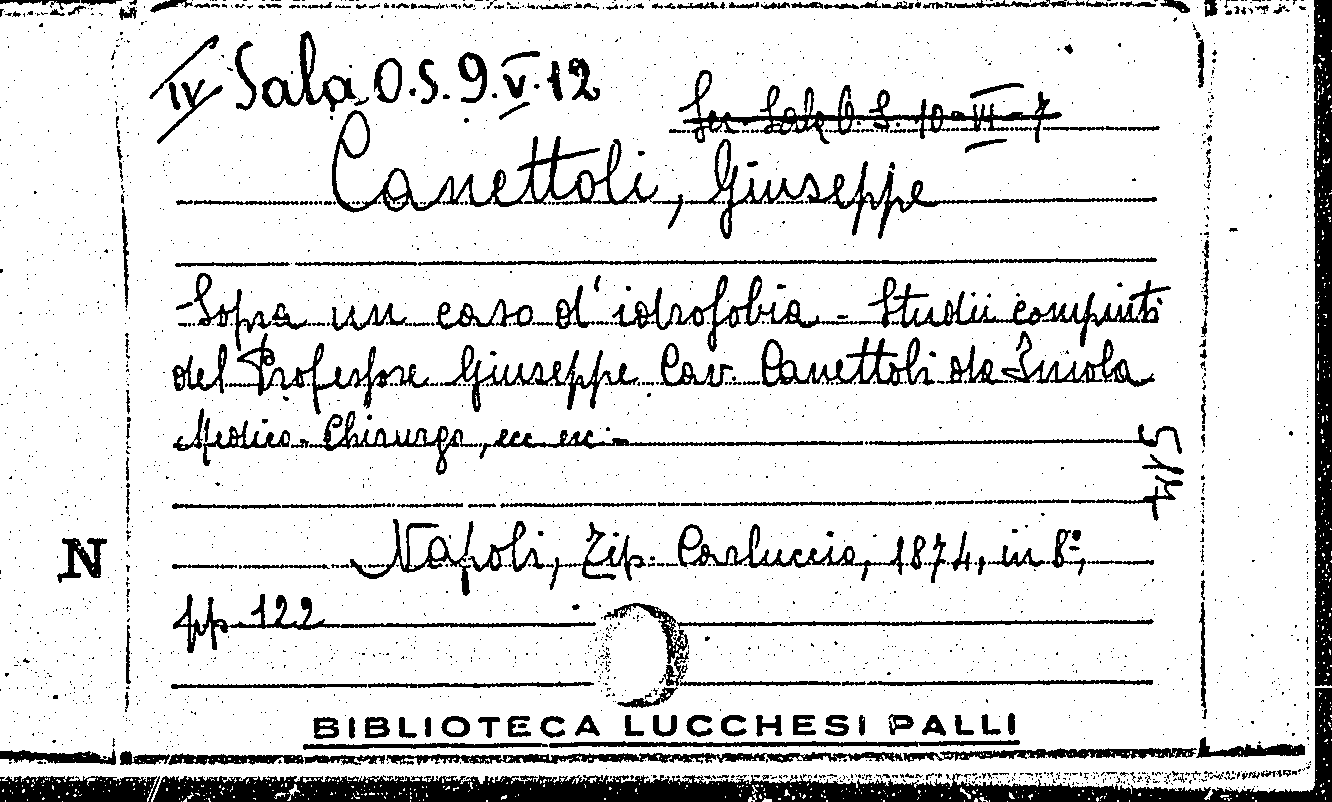 IV Sala O.S. 9.V.12
Ser. Sala O. S. 10-VI-7
Canettoli, Giuseppe
Sopra un caso d'idrofobia - Studii compiuti
del Professore Giuseppe Cav. Canettoli da Imola
Medico-Chirurgo, ecc ecc.-
Napoli, Tip. Carluccio, 1874, in 8º,
pp. 122
N
BIBLIOTECA LUCCHESI PALLI